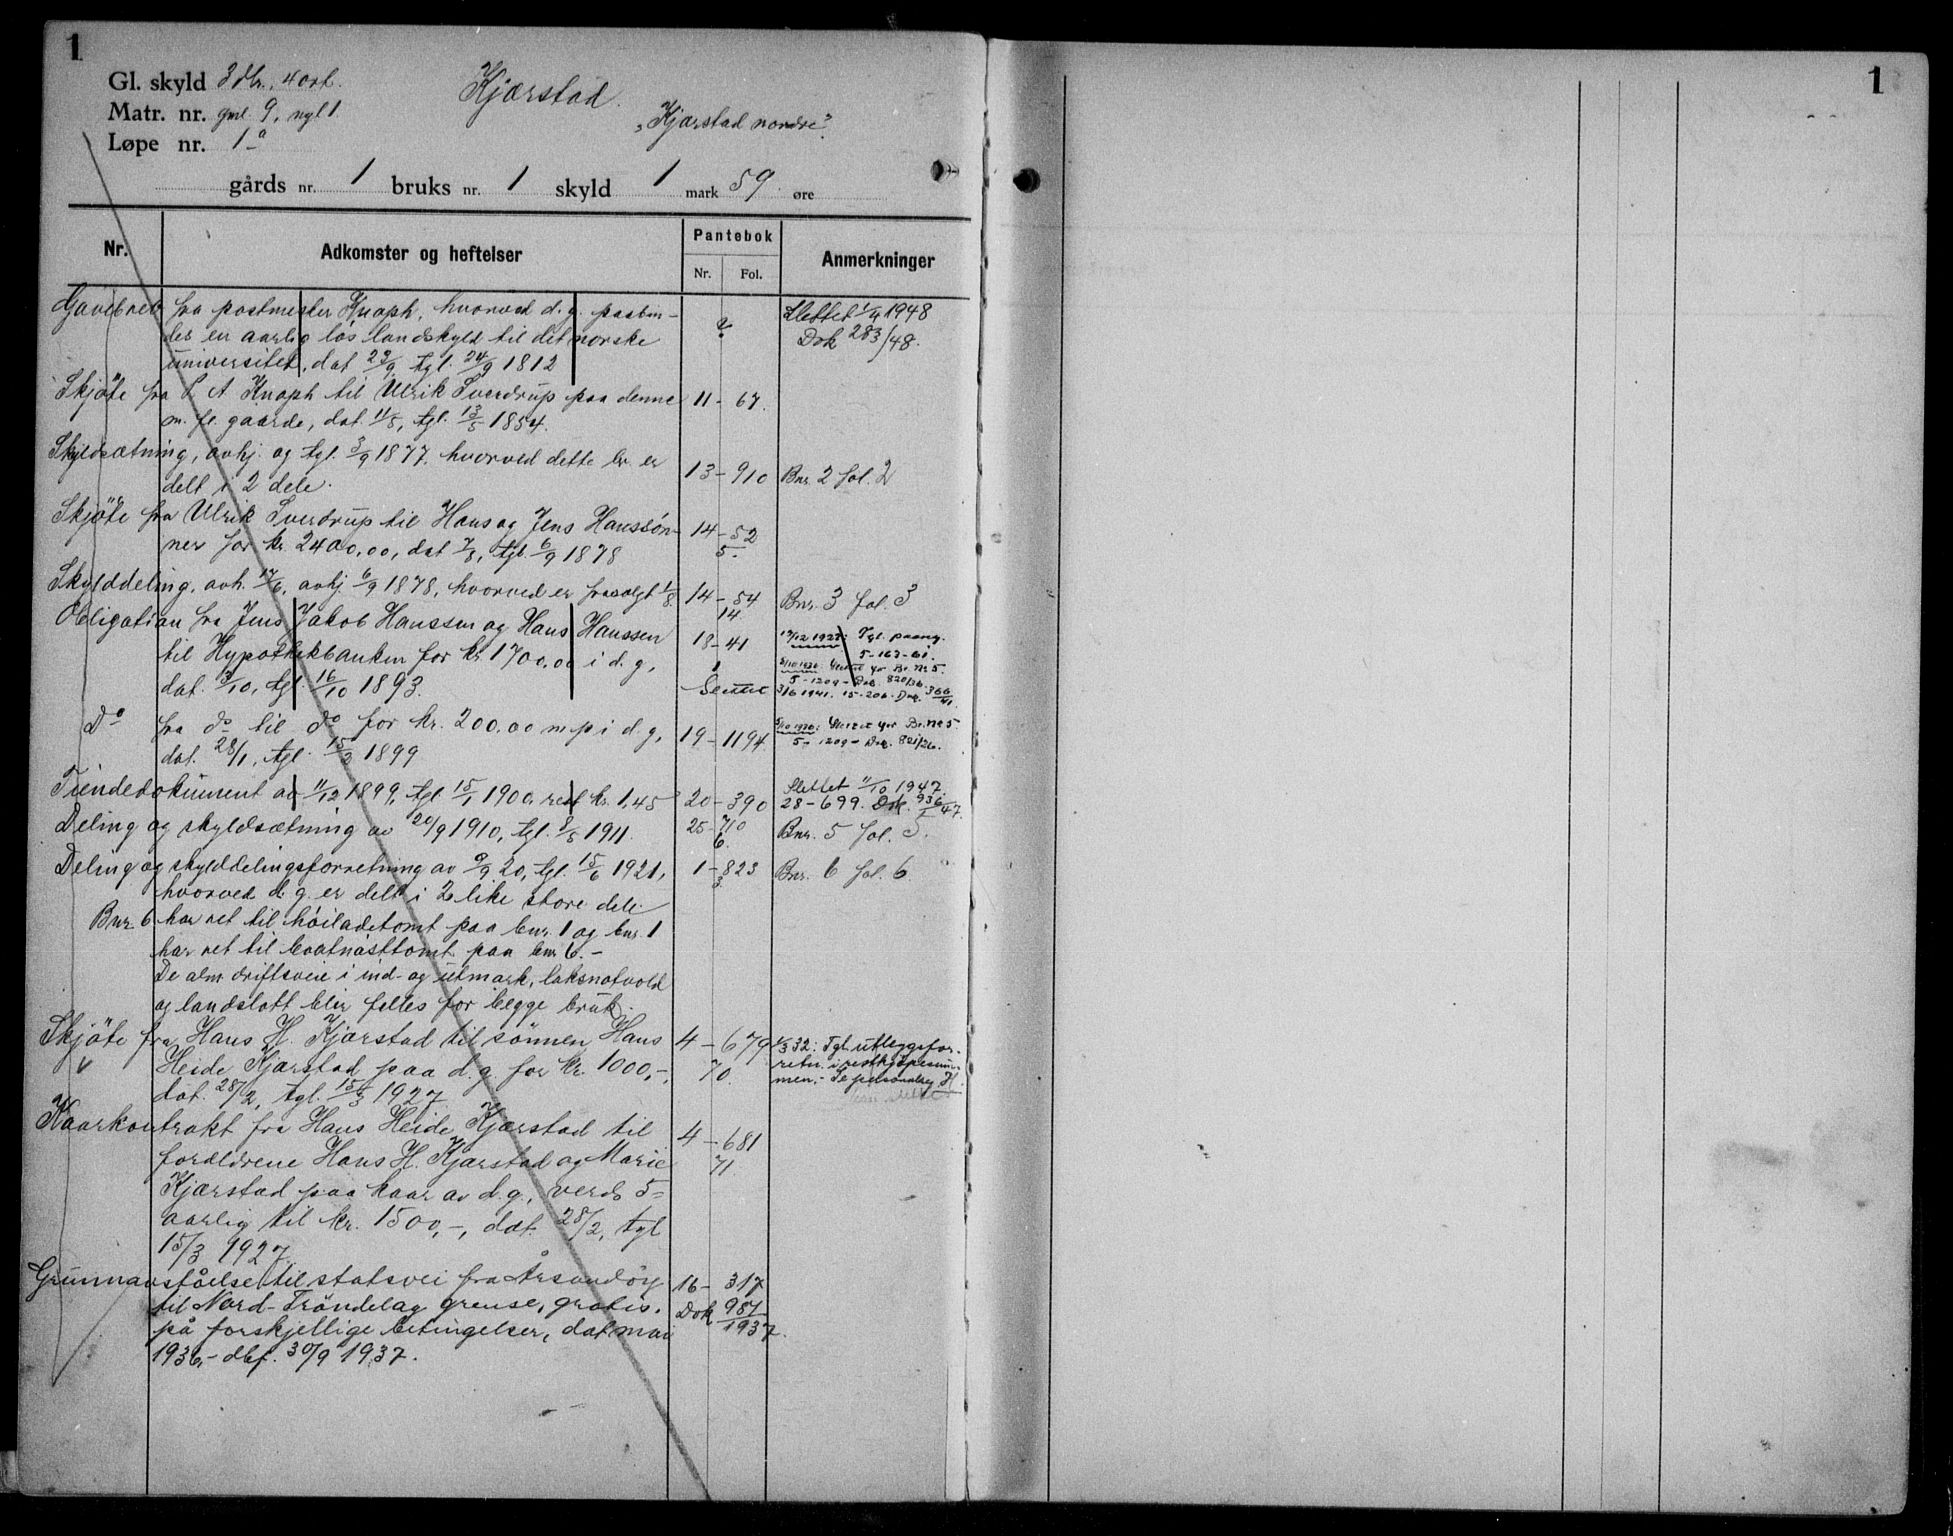 1
1
Gl. skyld 3 dlr. 4 ort.
Kjærstad.
Matr. nr. gml. 9, ngl 1.
"Kjærstad nordre".
Løpe nr. 1a
gårds nr. 1 bruks nr. 1 skyld 1 mark 59 øre
Nr. Adkomster og heftelser Pantebok Anmerkninger
Nr. Fol.
Gavebrev fra postmester Knoph, hvorved d. g. paabin- ? Slettet 1/4 1948
des en aarlig løs landskyld til det norske Dok 283/48.
universitet, dat 23/9, tgl. 24/9 1812
Skjöte fra A Knoph til Ulrik Sverdrup paa denne 11 - 67.
m. fl. gaarde, dat. 11/5, tgl. 13/5 1854.
Skyldsætning, avhj. og tgl. 3/9 1877, hvorved dette br. er
delt i 2 dele. 13 - 910 Bnr. 2 fol. 2
Skjöte fra Ulrik Sverdrup til Hans og Jens Hanssøn- 14 - 52
ner for kr. 2400,00, dat 7/3, tgl. 6/9 1878 5.
Skylddeling, avh. 17/6, avhj. 6/9 1878, hvorved er frasolgt 1/8. 14 - 54 Bnr. 3 fol. 3
14
Obligation fra Jens Jakob Hanssen og Hans Hanssen 18 - 41 12/12 1927: Tgl. paany.
til Hypothekbanken for kr. 1700,00 i d. g, 5 - 163 - 61.
dat. 3/10, tgl. 16/10 1893. 5/10 1936: Slettet for Br. Nr 5.
5 - 1209 - Dok. 820/36.
3/6 1941. 15-206. Dok. 366/41.
Do fra do til do for kr. 200,00 m p i d. g, 19 - 1194 5/10 1936: Slettet for Br. Nr 5.
dat. 28/1, tgl. 15/3 1899 5 - 1209 - Dok. 821/36.
Tiendedokument av 11/12 1899, tgl 15/1 1900, rest kr. 1,45 20 - 390 Slettet 11/10 1947.
28-699. Dok. 936/47.
Deling og skyldsætning av 20/9 1910, tgl. 2/5 1911. 25 - 710 Bnr. 5 fol. 5.
6.
Deling og skylddelingsforretning av 9/9 20, tgl. 15/6 1921, 1 - 823 Bnr. 6 fol. 6.
hvorved d. g. er delt i 2 like store dele. 3.
Bnr 6 har ret til höiladetomt paa bnr. 1 og bnr. 1
har ret til baatnösttomt paa bnr 6. -
De alm driftsveie i ind- og utmark, laksnotvold
og landslott blir felles for begge bruk.
Skjöte fra Hans H. Kjærstad til sönnen Hans 4 - 679 1/3 32: Tgl. utleggsfor-
Heide Kjærstad paa d. g. for kr. 1000,-, 70. retn. i restkjøpesum-
dat. 28/2, tgl. 15/3 1927 men. - Se personbog H.
Kaarkontrakt fra Hans Heide Kjærstad til 4 - 681
forældrene Hans H. Kjærstad og Marie 71.
Kjærstad paa kaar av d. g., verd 5-
aarlig til kr. 1500,-, dat. 28/2, tgl
15/3 1927
Grunnavståelse til statsvei fra Årsandöy 16 - 317
til Nord-Tröndelag grense, gratis. Dok 987/1937.
på forskjellige betingelser, dat mai
1936, - dbf. 30/9 1937.